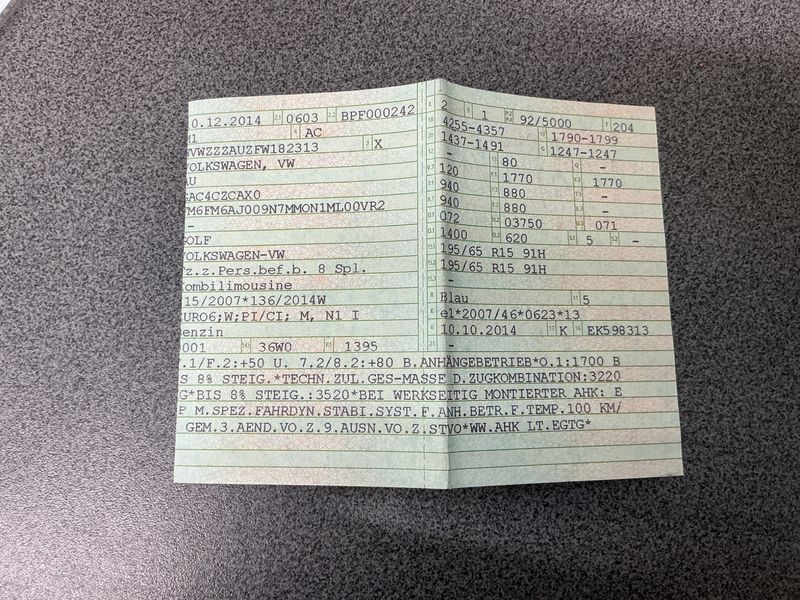 0.12.2014 0603 BPF000242
AC
VWZZZAUZFW182313 X
OLKSWAGEN, VW
AU
AC4CZCAX0
M6FM6AJ009N7MMON1ML00VR2
-
GOLF
OLKSWAGEN-VW
z.z.Pers.bef.b. 8 Spl.
ombilimousine
15/2007*136/2014W
URO6;W;PI/CI; M, N1 I
enzin
001 36W0 1395
2 1 92/5000 204
4255-4357 1790-1799
1437-1491 1247-1247
- 80 -
120 1770 1770
940 880 -
940 880 -
072 03750 071
1400 620 5 -
195/65 R15 91H
195/65 R15 91H
-
Blau 5
e1*2007/46*0623*13
10.10.2014 K EK598313
-
.1/F.2:+50 U. 7.2/8.2:+80 B.ANHÄNGEBETRIEB*O.1:1700 B
S 8% STEIG.*TECHN.ZUL.GES-MASSE D.ZUGKOMBINATION:3220
G*BIS 8% STEIG.:3520*BEI WERKSEITIG MONTIERTER AHK: E
F M.SPEZ.FAHRDYN.STABI.SYST.F.ANH.BETR.F.TEMP.100 KM/
GEM.3.AEND.VO.Z.9.AUSN.VO.Z.STVO*WW.AHK LT.EGTG*